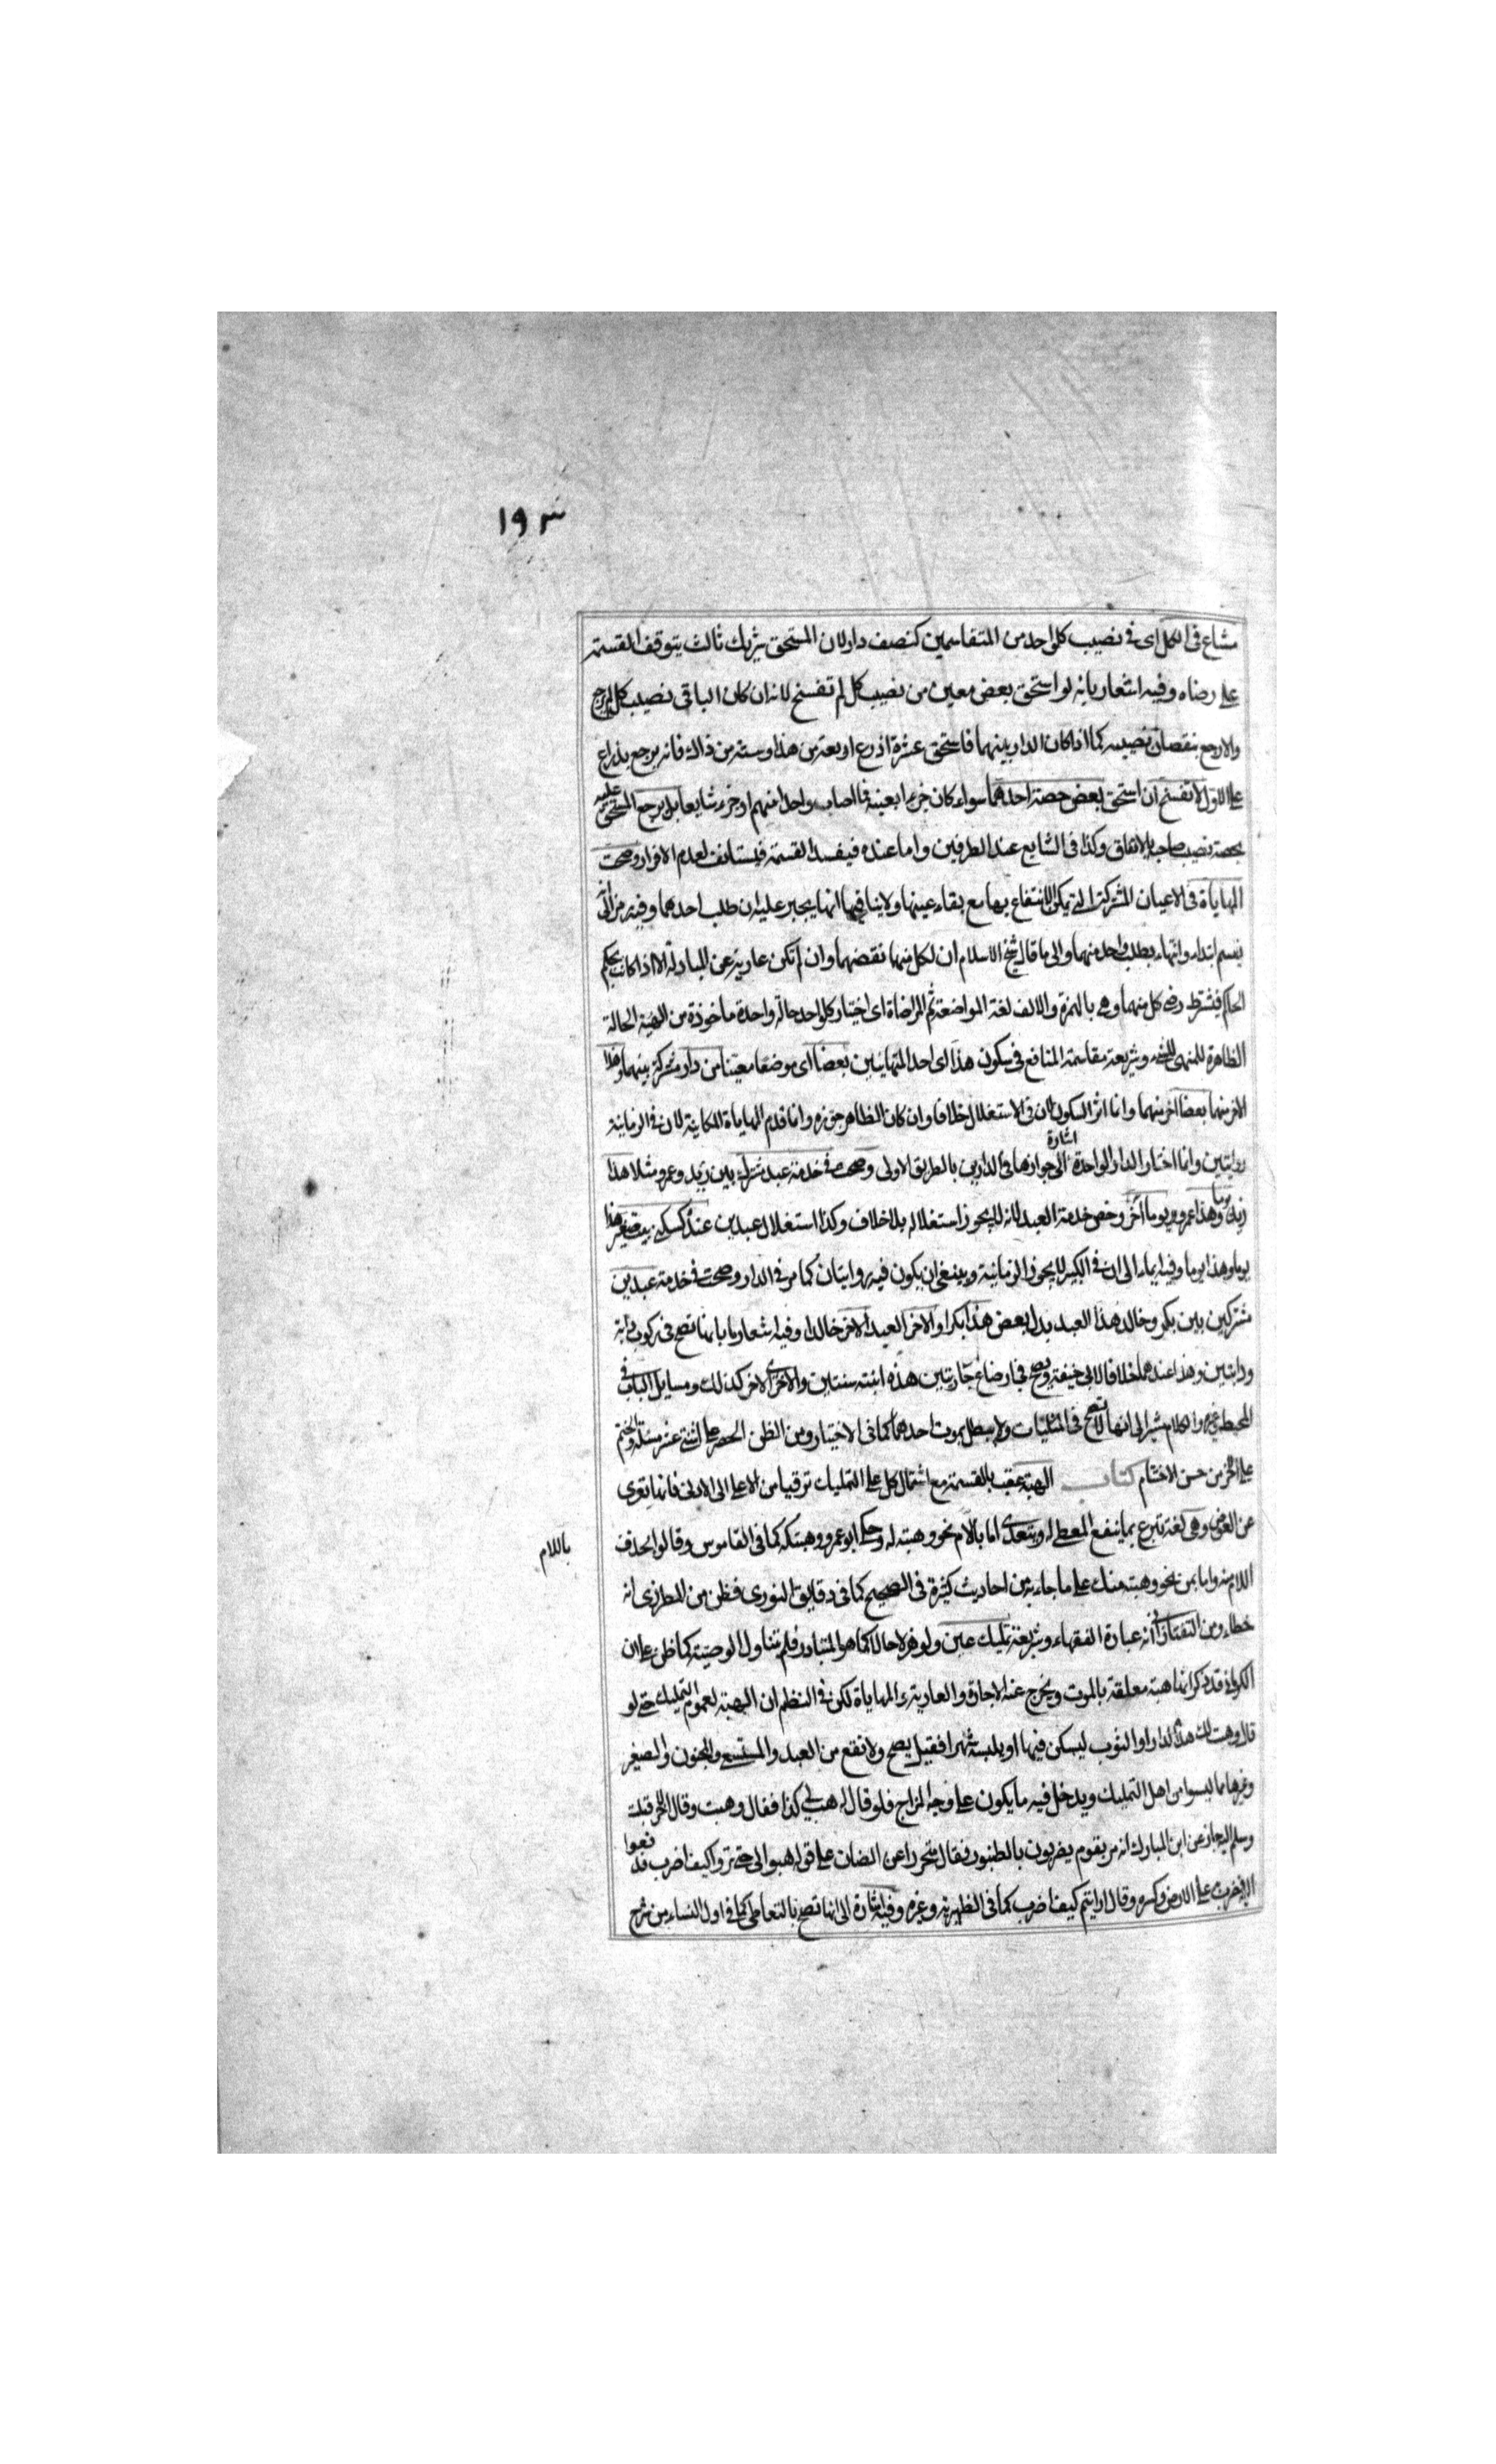 ١٩٣
مشاع فى الكل اى فى نصيب كل واحد من المتقاسمين كنصف دار لان المستحق شريك ثالث يتوقف القسمة
على رضاه وفيه اشعار بانه لو استحق بعض معين من نصيب كل لم تفسخ لانه ان كان الباقى نصيب كل لم يرجع
والا رجع بنقصان نصيبه كما اذا كان الدار بينهما فاستحق عشرة اذرع اربعة من هذا وستة من ذاك فانه يرجع بذراع
على الاول لا تفسخ ان استحق بعض حصة احدهما سواء كان جزءا بعينه فما اصاب واحدا منهم او جزء شايعا بل يرجع المستحق عليه
بحصة نصيب صاحبه بالاتفاق وكذا فى الشايع عند الطرفين واما عنده فيفسد القسمة فيستانف لعدم الافراز وصحت
المهاياة فى الاعيان المشتركة التى يمكن الانتفاع بها مع بقاء عينها ولا ينافيها انها يجبر عليه ان طلب احدهما وفيه رمز الى انه
يقسم ابتداء وانتهاء بطلب واحد منهما والى ما قال شيخ الاسلام ان لكل منهما نقضهما وان لم تكن عارية عن المبادلة الا اذا كانت بحكم
الحاكم فيشترط رضى كل منهما وهى بالهمزة والالف لغة المواضعة ثم المراضاة اى اختيار كل واحد حالة واحدة ماخوذة من الهيئة الحالة
الظاهرة للمتهى للشئ وشريعة مقاسمة المنافع فى سكون هذا اى احد المتهايئين بعضا اى موضعا معينا من دار مشتركة بينهما وهذا
الاخر منهما بعضا اخر منهما وانما اثر السكون لان فى الاستغلال خلافا وان كان الظاهر جوزه وانما قدم المهاياة المكانية لان فى الزمانية
روايتين وانما اختار الدار الواحدة اشارة الى جوازها فى الدارين بالطريق الاولى وصحت فى خدمة عبد مشترك بين زيد وعمرو مثلا هذا
زيد يوما وهذا عمرو يوما آخر وخص خدمة العبد لانه لا يجوز استغلاله بلا خلاف وكذا استغلال عبدين عنده كسكنى بيت صغير هذا
يوما وهذا يوما وفيه ايماء الى ان فى الكبير لا يجوز الزمانية وينبغى ان يكون فيه روايتان كما مر فى الدار وصحت فى خدمة عبدين
مشتركين بين بكر وخالد هذا العبد بدل بعض هذا بكرا والاخر العبد الاخر خالدا وفيه اشعار بانها تصح فى ركوب دابة
ودابتين وهذا عندهما خلافا لابى حنيفة ويصح فى ارضاع جاريتين هذه ابنته سنتين والاخرى الاخر كذلك ومسايل الباب فى
المحيط وغيره والكلام مشير الى انها لا تصح فى المثليات ولا يبطل بموت احدهما كما فى الاختيار ومن الظن الحصر على اثنتى عشر مسئلة والختم
على الاخر من حسن الاختتام كتاب الهبة عقب بالقسمة مع اشتمال كل على التمليك ترقيا من الاعلى الى الادنى فانها تعرى
عن العوض وهى لغة تبرع بما ينفع المعطى له ويتعدى اما باللام نحو وهبته له وحكى ابو عمرو وهبتكه كما فى القاموس وقالوا بحذف
باللام
اللام منه واما بمن نحو وهبته منك على ما جاء به من احاديث كثيرة فى الصحيح كما فى دقايق النووى فظن من المطرزى انه
خطاء ومن التفتازانى انه عبارة الفقهاء وشريعة تمليك عين ولو هزلا حالا كما هو المتبادر فلم تتناول الوصية كما ظن على ان
الكرمانى قد ذكر انها هبة معلقة بالموت ويخرج عنه الاجارة والعارية والمهاياة لكن فى النظم ان الهبة لعموم التمليك حتى لو
قال وهبت لك هذه الدار او الثوب ليسكن فيها او يلبسه شهرا فقيل يصح ولا تقع من العبد والمستسعى والمجنون والصغير
وغيرها مما ليسوا من اهل التمليك ويدخل فيه ما يكون على وجه المزاح فلو قال له هب لى كذا فقال وهبت وقال الاخر قبلت
وسلم اليه جاز عن ابن المبارك انه مر بقوم يضربون بالطنبور فقال متحرزا عن الضمان على قوله هبوا لى حتى تروا كيف اضرب فدفعوا
اليه فضرب على الارض وكسره وقال ارايتم كيف اضرب كما فى الظهيرية وغيره وفيه اشارة الى انها تصح بالتعاطى كما فى اول النساء من شرح